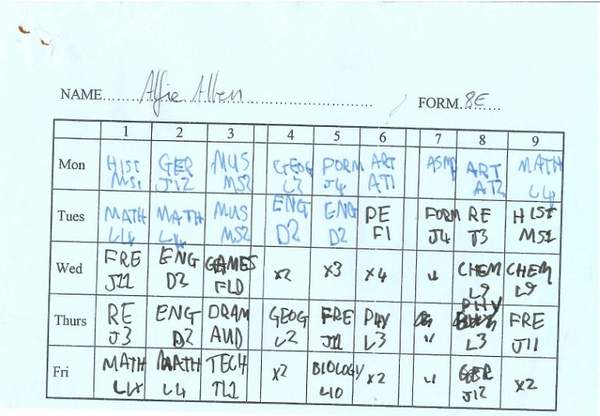 NAME Alfie Allen FORM 8E
1 2 3 4 5 6 7 8 9
Mon HIST GER MUS GEOG FORM ART ASM ART MATH
MS1 J12 MS2 L2 J4 AT1 AT2 L4
Tues MATH MATH MUS ENG ENG PE FORM RE HIST
L4 L4 MS2 D2 D2 F1 J4 J3 MS1
Wed FRE ENG GAMES x2 x3 x4 " CHEM CHEM
J11 D2 FLD L9 L9
Thurs RE ENG DRAM GEOG FRE PHY PHY FRE
J3 D2 AUD L2 J11 L3 L3 J11
Fri MATH MATH TECH x2 BIOLOGY x2 " GER x2
L4 L4 TL1 L10 J12